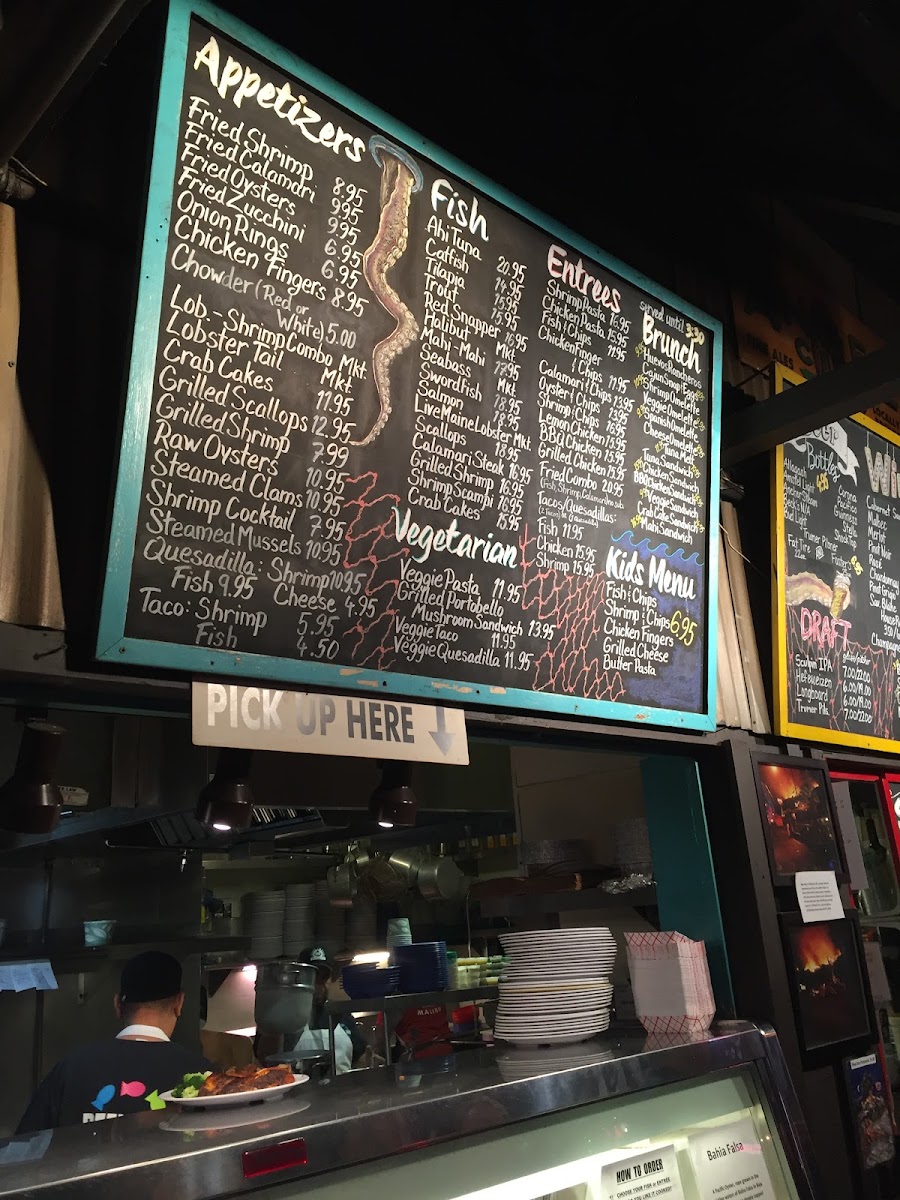 Appetizers
Fried Shrimp 8.95
Fried Calamari 9.95
Fried Oysters 9.95
Fried Zucchini 6.95
Onion Rings 6.95
Chicken Fingers 8.95
Chowder (Red or White) 5.00
Lob.-Shrimp Combo Mkt
Lobster Tail Mkt
Crab Cakes 11.95
Grilled Scallops 12.95
Grilled Shrimp 7.99
Raw Oysters 10.95
Steamed Clams 10.95
Shrimp Cocktail 7.95
Steamed Mussels 10.95
Quesadilla: Shrimp 10.95
Fish 9.95 Cheese 4.95
Taco: Shrimp 5.95
Fish 4.50
Fish
Ahi Tuna 20.95
Catfish 14.95
Tilapia 15.95
Trout 15.95
Red Snapper 16.95
Halibut Mkt
Mahi-Mahi 17.95
Seabass Mkt
Swordfish 18.95
Salmon 18.95
Live Maine Lobster Mkt
Scallops 18.95
Calamari Steak 16.95
Grilled Shrimp 16.95
Shrimp Scampi 16.95
Crab Cakes 15.95
Vegetarian
Veggie Pasta 11.95
Grilled Portobello
Mushroom Sandwich 13.95
Veggie Taco 11.95
Veggie Quesadilla 11.95
Entrees
Shrimp Pasta 16.95
Chicken Pasta 15.95
Fish & Chips 11.95
Chicken Finger
& Chips 11.95
Calamari & Chips 13.95
Oyster & Chips 13.95
Shrimp & Chips 16.95
Lemon Chicken 15.95
BBQ Chicken 15.95
Grilled Chicken 15.95
Fried Combo 20.95
Tacos/Quesadillas:
Fish 11.95
Chicken 15.95
Shrimp 15.95
served until 3:30
Brunch
Huevos Rancheros
Cajun Snap & Eggs
Shrimp Omelette
Veggie Omelette
Spanish Omelette
Cheese Omelette
Tuna Melt
Tuna Sandwich
Chicken Sandwich
BBQ Chicken Sandwich
Veggie Sandwich
Crab Cake Sandwich
Mahi Sandwich
Kids Menu
6.95
Fish & Chips
Shrimp & Chips
Chicken Fingers
Grilled Cheese
Butter Pasta
PICK UP HERE
Bottles
Amstel Light
Bud Light
Fat Tire
Corona
Pacifico
Guinness
Stella
Shock Top
Trumer Pilsner
DRAFT
Sculpin IPA 7.00/22.00
Hefeweizen 6.00/19.00
Longboard 6.00/19.00
Trumer Pils. 7.00/22.00
Cabernet
Malbec
Merlot
Pinot Noir
Rosé
Chardonnay
Pinot Grigio
Sav. Blanc
Champagne
MALIBU
HOW TO ORDER
CHOOSE YOUR FISH or ENTRÉE
Bahia Falsa